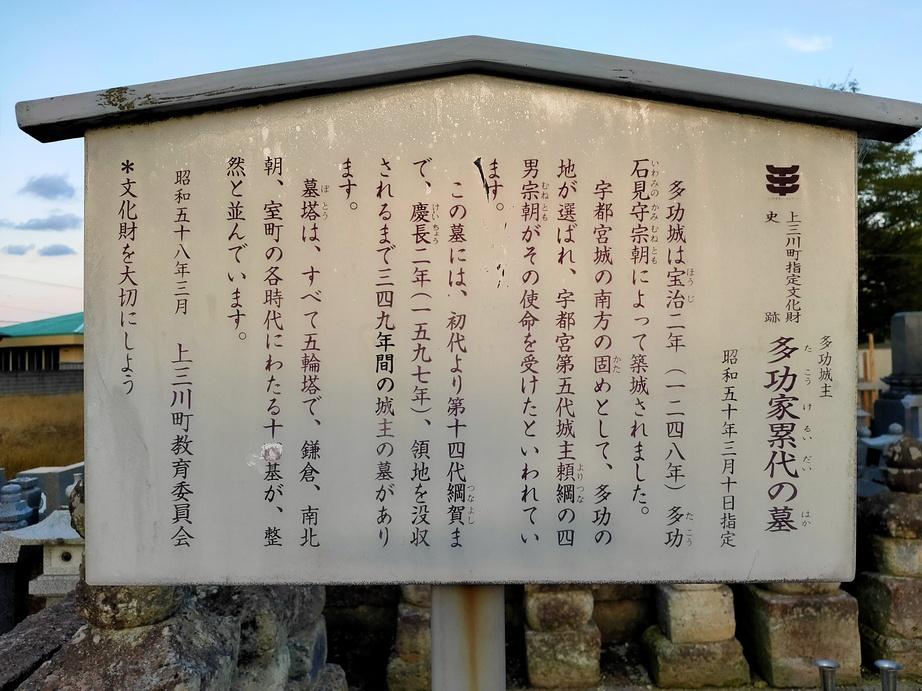 多功城主
上三川町指定文化財
史跡
たこうけるいだいはか
多功家累代の墓
昭和五十年三月十日指定
ほうじ たこう
多功城は宝治二年(一二四八年)多功
いわみのかみむねとも
石見守宗朝によって築城されました。
かた
宇都宮城の南方の固めとして、多功の
よりつな
地が選ばれ、宇都宮第五代城主頼綱の四
むねとも
男宗朝がその使命を受けたといわれてい
ます。
つなよし
この墓には、初代より第十四代綱賀ま
けいちょう
で、慶長二年(一五九七年)、領地を没収
されるまで三四九年間の城主の墓があり
ます。
ぼとう
墓塔は、すべて五輪塔で、鎌倉、南北
朝、室町の各時代にわたる十基が、整
然と並んでいます。
昭和五十八年三月 上三川町教育委員会
*文化財を大切にしよう